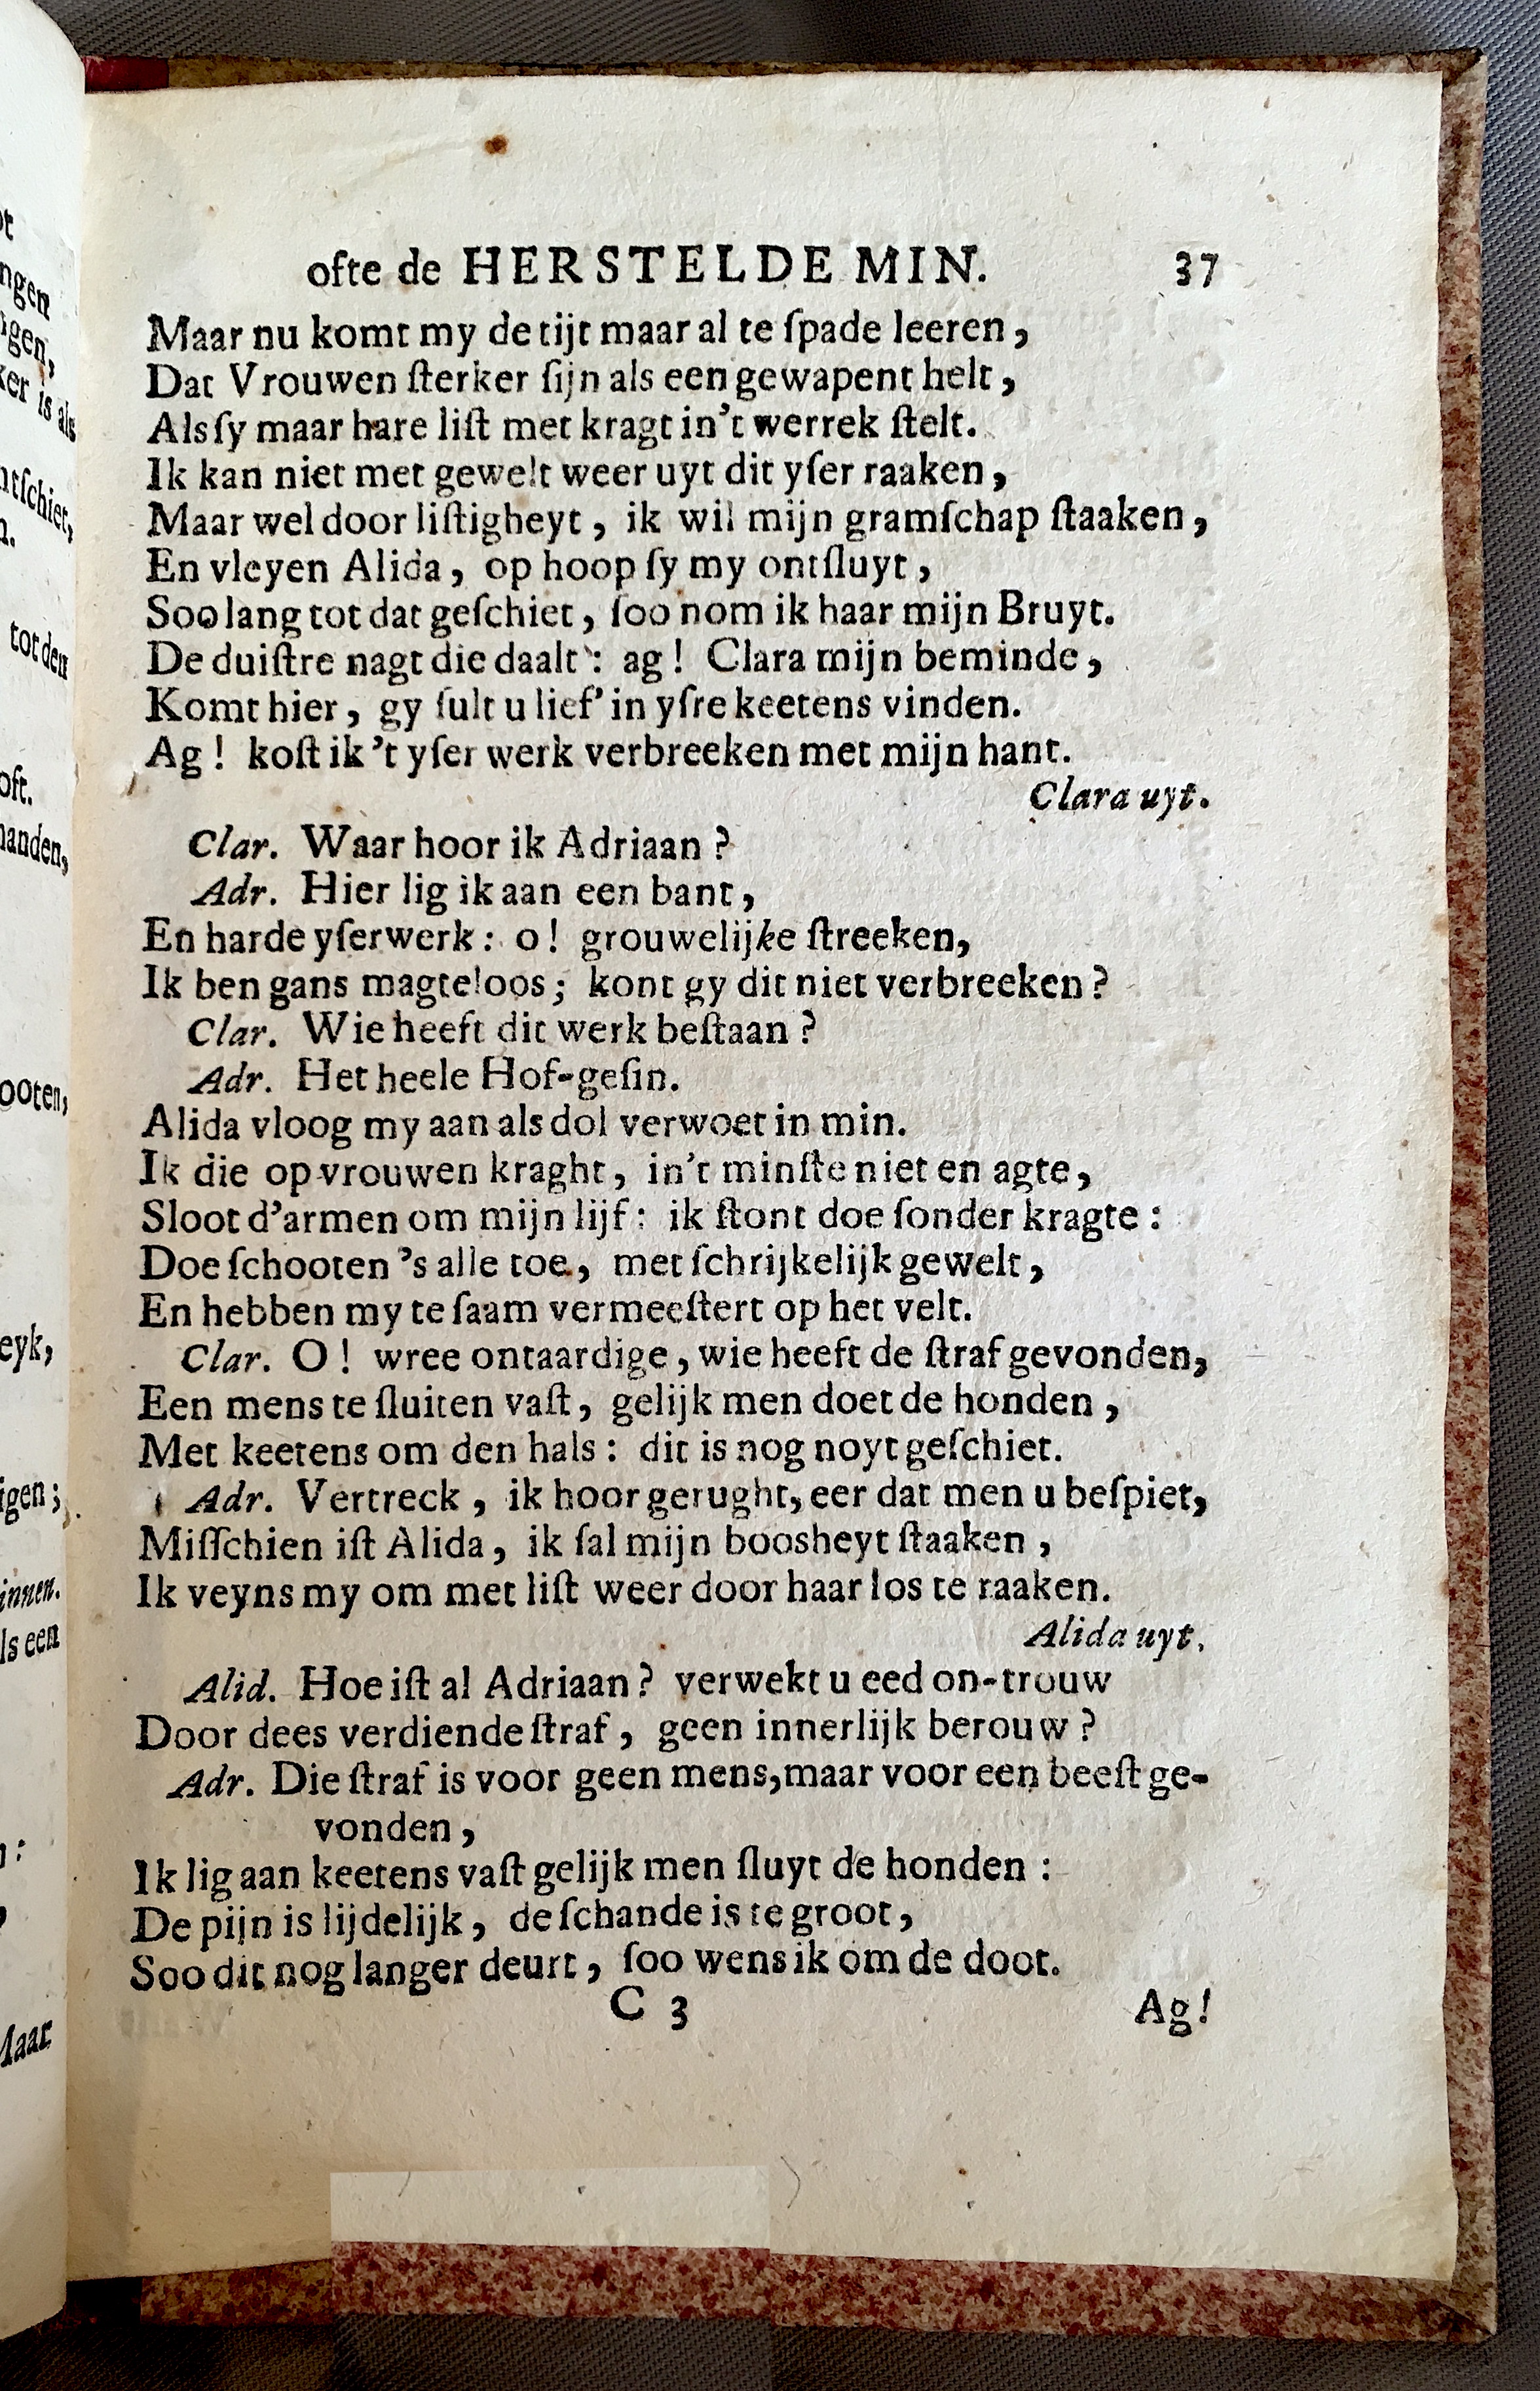 ofte de HERSTELDE MIN. 37
Maar nu komt my de tijt maar al te ſpade leeren,
Dat Vrouwen ſterker ſijn als een gewapent helt,
Als ſy maar hare liſt met kragt in't werrek ſtelt.
Ik kan niet met gewelt weer uyt dit yſer raaken,
Maar wel door liſtigheyt, ik wil mijn gramſchap ſtaaken,
En vleyen Alida, op hoop ſy my ontſluyt,
Soo lang tot dat geſchiet, ſoo nom ik haar mijn Bruyt.
De duiſtre nagt die daalt: ag! Clara mijn beminde,
Komt hier, gy ſult u lief' in yſre keetens vinden.
Ag! koſt ik 't yſer werk verbreeken met mijn hant.
Clara uyt.
Clar. Waar hoor ik Adriaan?
Adr. Hier lig ik aan een bant,
En harde yſerwerk: o! grouwelijke ſtreeken,
Ik ben gans magteloos; kont gy dit niet verbreeken?
Clar. Wie heeft dit werk beſtaan?
Adr. Het heele Hof-geſin.
Alida vloog my aan als dol verwoet in min.
Ik die op vrouwen kraght, in't minſte niet en agte,
Sloot d'armen om mijn lijf: ik ſtont doe ſonder kragte:
Doe ſchooten 's alle toe, met ſchrijkelijk gewelt,
En hebben my te ſaam vermeeſtert op het velt.
Clar. O! wree ontaardige, wie heeft de ſtraf gevonden,
Een mens te ſluiten vaſt, gelijk men doet de honden,
Met keetens om den hals: dit is nog noyt geſchiet.
Adr. Vertreck, ik hoor gerught, eer dat men u beſpiet,
Miſſchien iſt Alida, ik ſal mijn boosheyt ſtaaken,
Ik veyns my om met liſt weer door haar los te raaken.
Alida uyt.
Alid. Hoe iſt al Adriaan? verwekt u eed on-trouw
Door dees verdiende ſtraf, geen innerlijk berouw?
Adr. Die ſtraf is voor geen mens, maar voor een beeſt ge-
vonden,
Ik lig aan keetens vaſt gelijk men ſluyt de honden:
De pijn is lijdelijk, de ſchande is te groot,
Soo dit nog langer deurt, ſoo wens ik om de doot.
C 3 Ag!